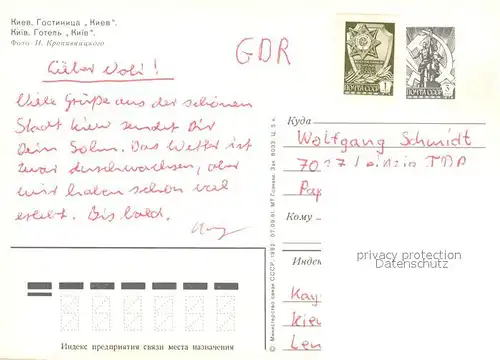 Киев. Гостиница „Киев".
Київ. Готель „Київ".
Фото И. Кропивницкого
GDR
Lieber Vati!
Viele Grüße aus der schönen
Stadt Kiew sendet Dir
Dein Sohn. Das Wetter ist
zwar durchwachsen, aber
wir haben schon viel
erlebt. Bis bald.
1
ПОЧТА СССР
3
ПОЧТА СССР
Куда
Wolfgang Schmidt
7027 Leipzig
Кому
privacy protection
Datenschutz
Индекс
Kay
Kiew
Len
Индекс предприятия связи места назначения
© Министерство связи СССР. 1982. 07.09.81. МТ Гознака. Зак. 8033. Ц. 5 к.